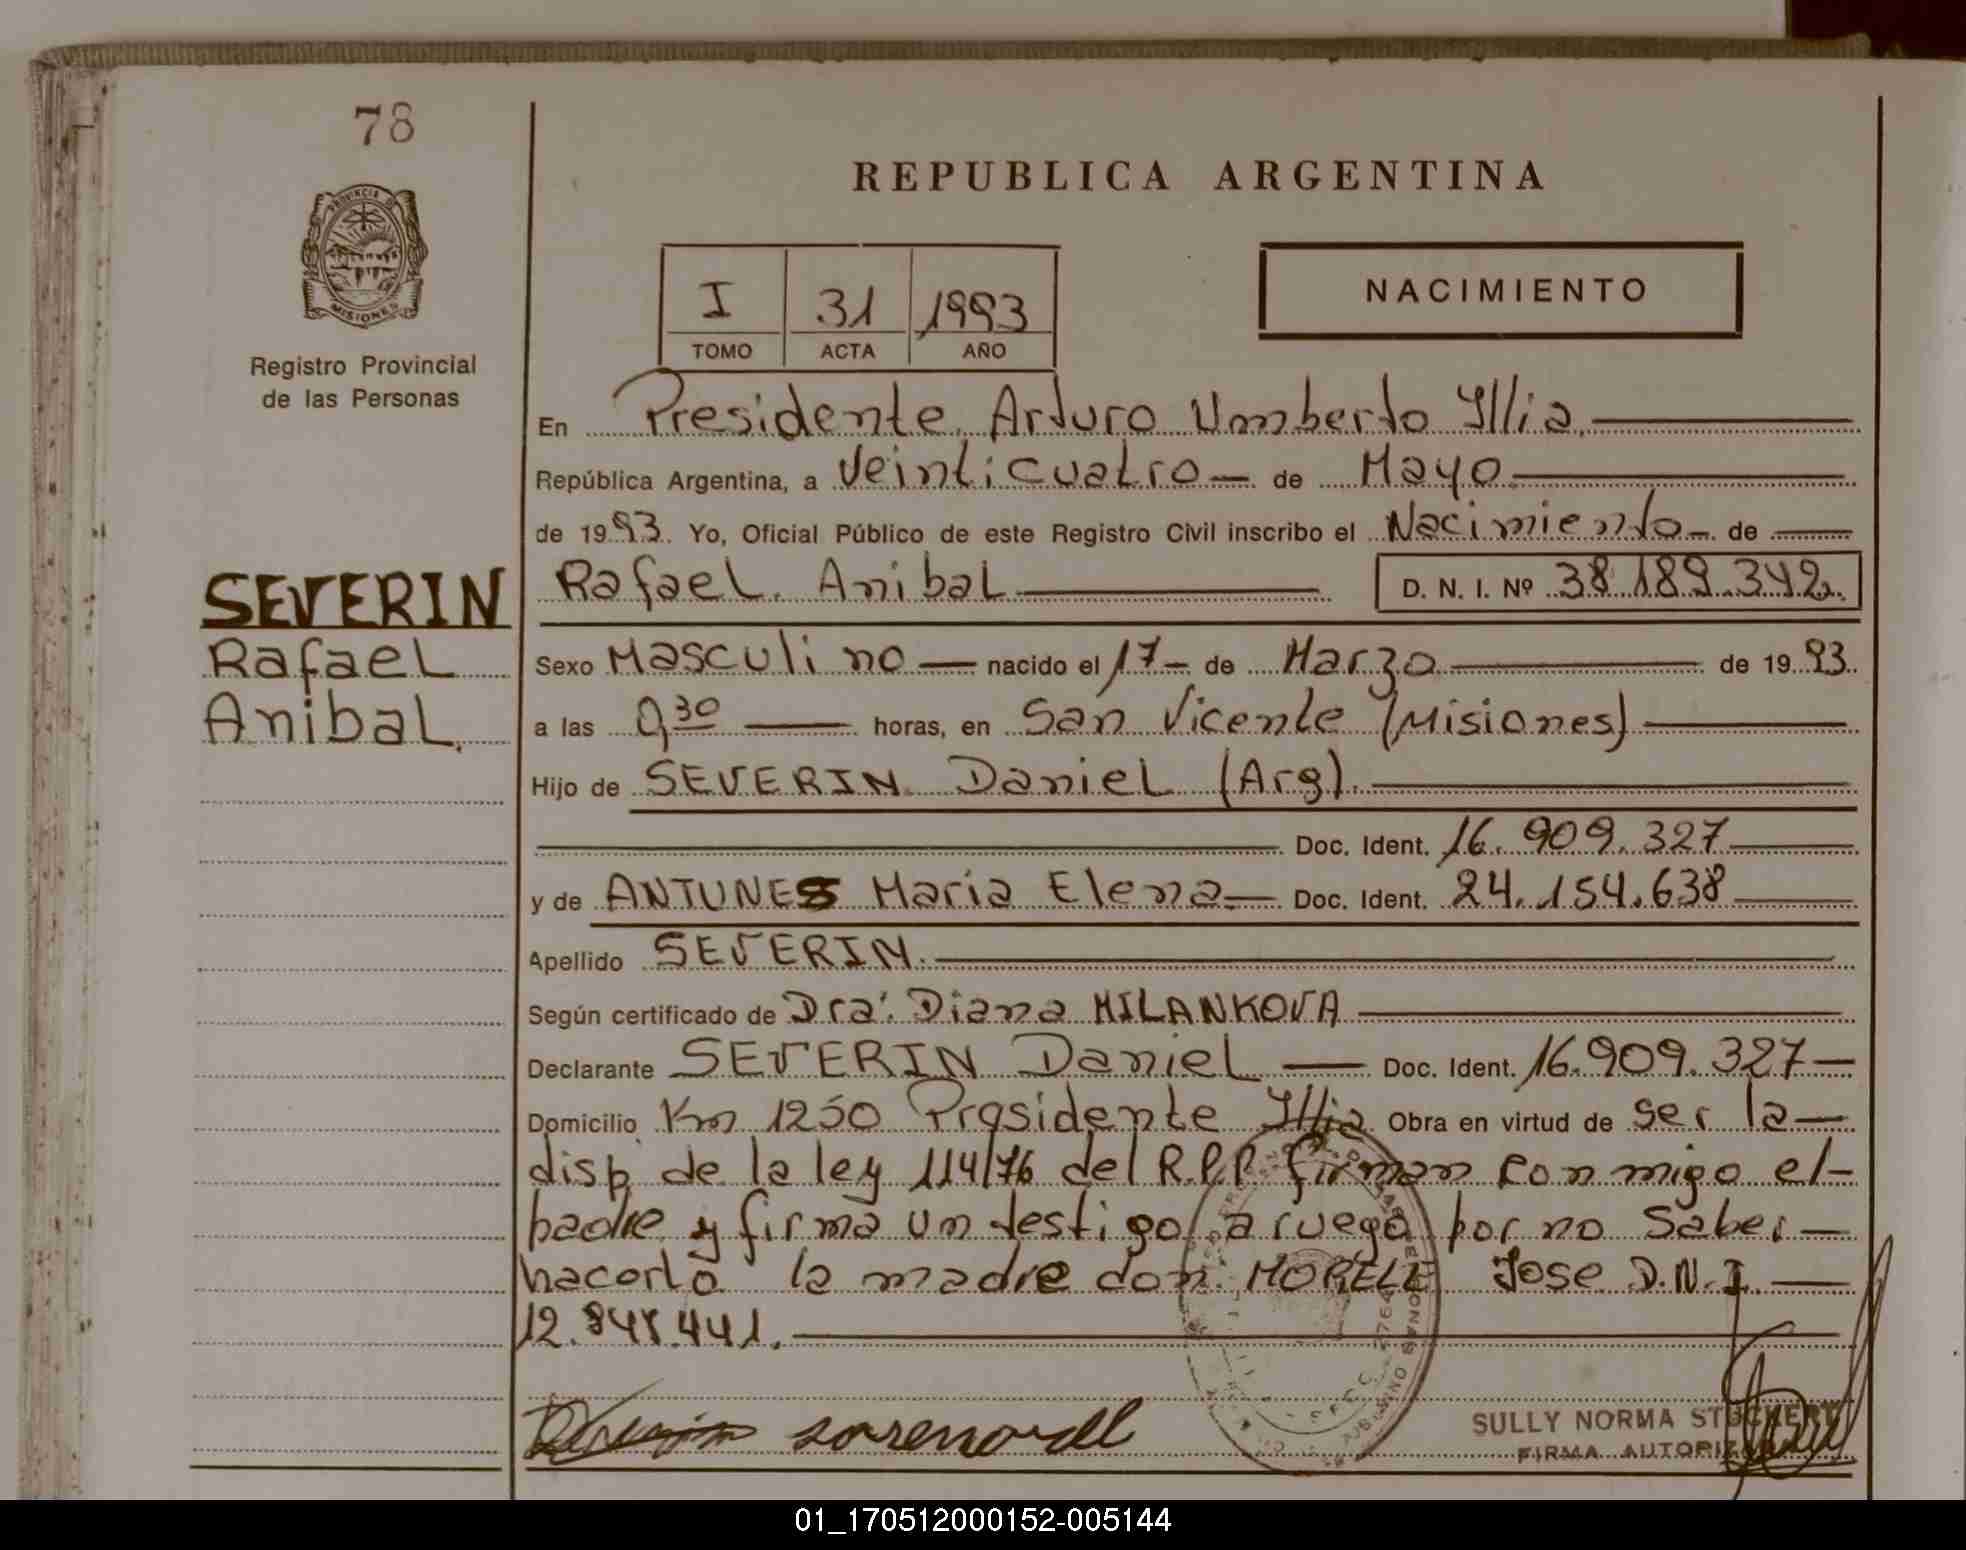 78
REPUBLICA ARGENTINA
PROVINCIA DE
MISIONES
Registro Provincial
de las Personas
I 31 1993
TOMO ACTA AÑO
NACIMIENTO
En Presidente Arturo Umberto Illia
República Argentina, a Veinticuatro — de Mayo
de 1993. Yo, Oficial Público de este Registro Civil inscribo el Nacimiento — de
SEVERIN
Rafael
Anibal
Rafael Anibal D. N. I. Nº 38.189.342
Sexo Masculino — nacido el 17 — de Marzo de 1993
a las 9,30 horas, en San Vicente (Misiones)
Hijo de SEVERIN Daniel (Arg).
Doc. Ident. 16.909.327
y de ANTUNES Maria Elena — Doc. Ident. 24.154.638
Apellido SEVERIN
Según certificado de Dra: Diana MILANKOVA
Declarante SEVERIN Daniel — Doc. Ident. 16.909.327 —
Domicilio Km 1250 Presidente Illia Obra en virtud de ser la —
disp de la ley 114/76 del R.P.P. firman conmigo el —
padre y firma un testigo a ruego por no Saber —
hacerlo la madre don MORELE Jose D.N.I. —
12.848.441.
SULLY NORMA STUCKERT
FIRMA AUTORIZADA
01_170512000152-005144